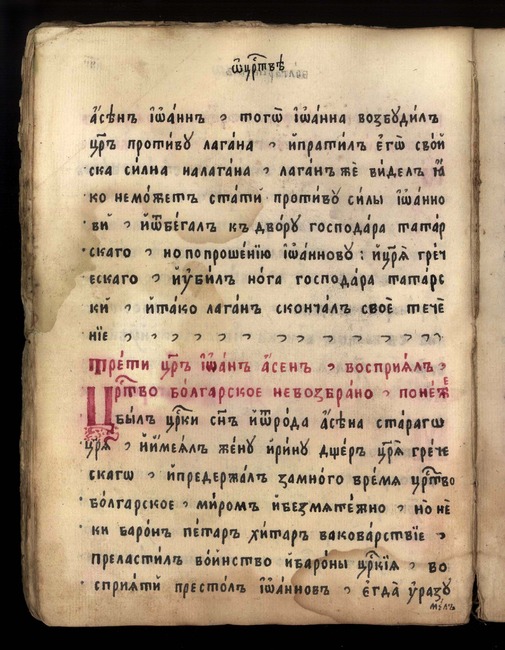 ѡ҆цр҇твѣ
а҆сѣнъ і҆ѡа́ннъ , тогѡ̀ і҆ѡа́нна возбꙋди́лъ
цр҃ъ проти́вꙋ лага́на , и҆пра́тилъ є҆гѡ̀ сво́й
ска си́лна налага́на , лага́нъ жѐ ви́делъ ꙗ҆́
ко немо́жетъ ста́ти проти́вꙋ си́лы і҆ѡа́нно
вй , и҆ѿбе́галъ къ дво́рꙋ господа́ра тата́р
скаго , но попроше́нїю і҆ѡа́нновꙋ : и҆цр҃ѧ̀ гре́ч
ескаго , и҆ꙋби́лъ но́га господа́ра тата́рс
кй , и҆та́ко лага́нъ сконча́лъ своѐ течѐ
нїе , , , , , , , , , , ,
тре́ти цр҃ъ і҆ѡа́нъ а҆́сен , воспри́ѧлъ ,
Цр҇тво бо́лгарское невоꙁбра́но , поне́же
бы́лъ цр҃ки сн҃ъ и҆ѿро́да а҆сѣ́на ста́рагѡ
цр҃ѧ̀ , и҆и҆ме́ѧлъ же́нꙋ и҆ри́нꙋ дще́ръ цр҃ѧ̀ гре́че
скагѡ , и҆предержа́лъ ꙁамно́го вре́мѧ цр҇тво
бо́лгарское , ми́ромъ и҆беꙁмѧте́жно , но нѐ
ки баро́нъ пе́таръ хи́таръ ваково́рствїе ,
преласти́лъ во́инство и҆баро́ны цр҃кїѧ , во
сприѧ́ти престо́лъ і҆ѡа́нновъ , є҆гда̀ ꙋ҆раꙁꙋ
мѣ́лъ